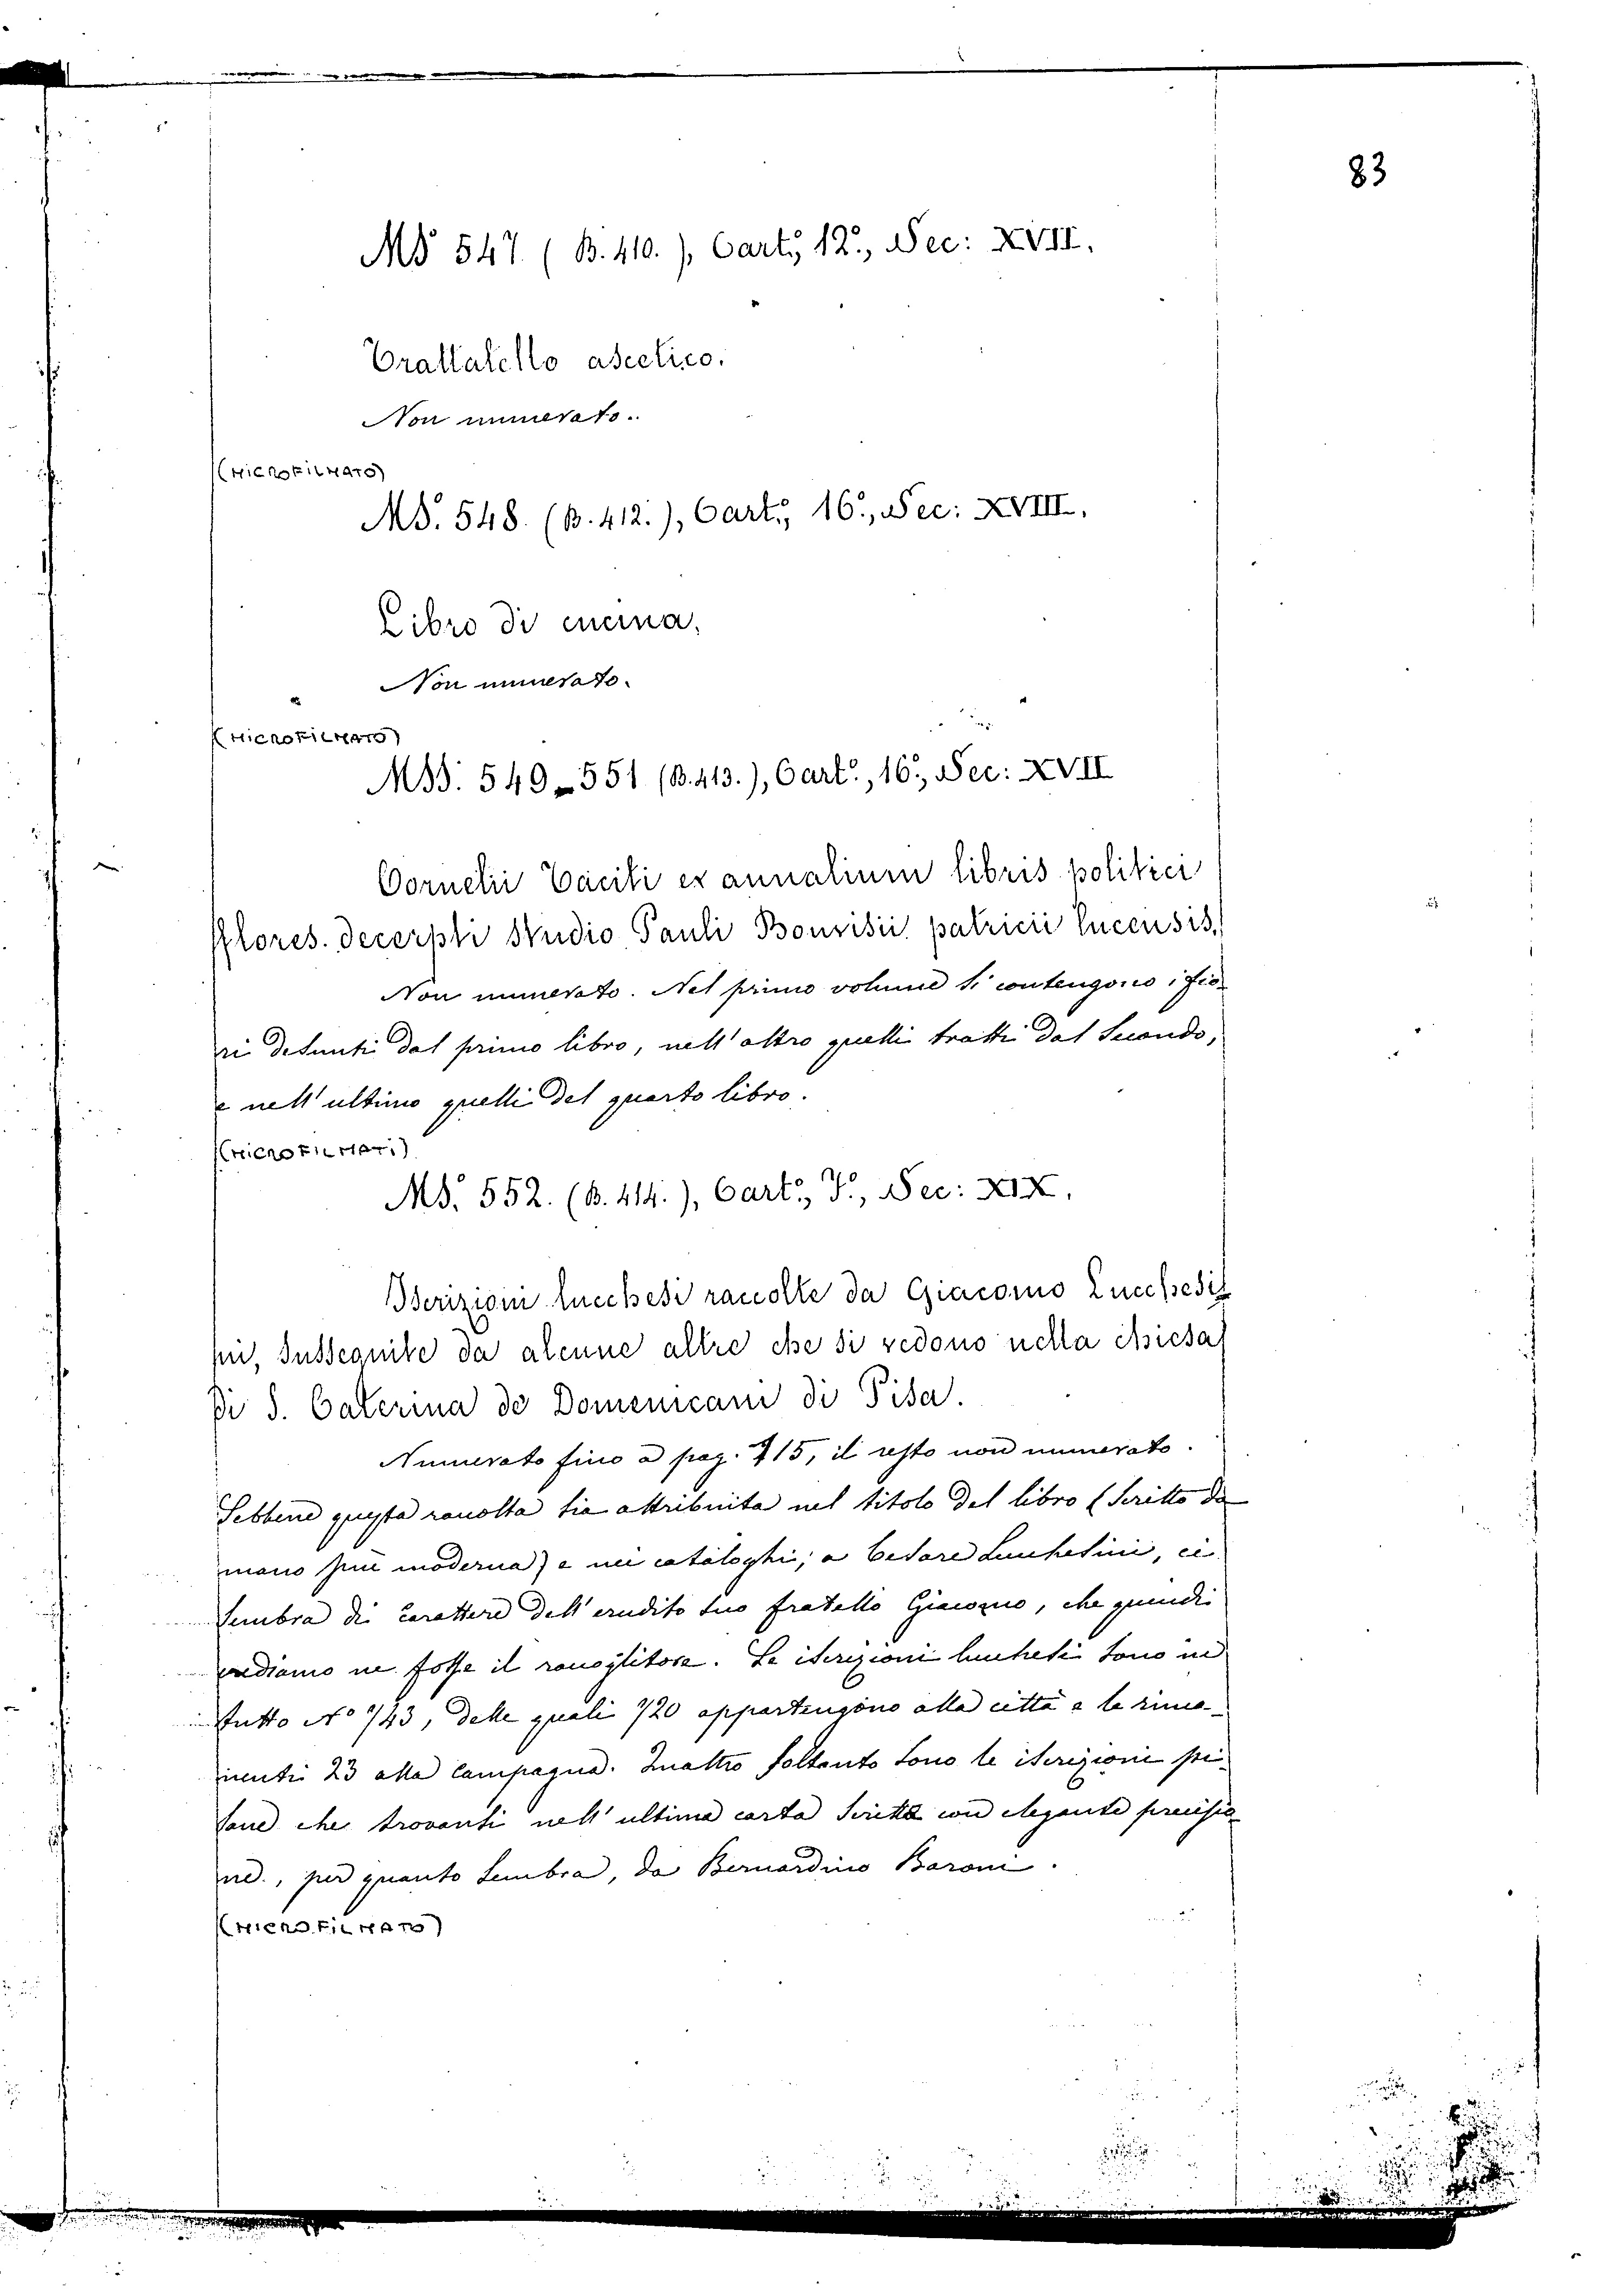 83
MS 547 ( B. 410. ), Cart.º, 12.º, Sec: XVII.
Trattatello ascetico.
Non numerato.
(MICROFILMATO)
MS. 548. (B. 412.), Cart.º, 16.º, Sec: XVIII.
Libro di cucina.
Non numerato.
(MICROFILMATO)
MSS. 549-551 (B. 413.), Cart.º, 16.º, Sec: XVII
Cornelii Taciti ex annalium libris politici
flores. decerpti studio Pauli Bonvisii patricii lucensis.
Non numerato. Nel primo volume si contengono i fio-
ri desunti dal primo libro, nell'altro quelli tratti dal secondo,
e nell'ultimo quelli del quarto libro.
(MICROFILMATI)
MS. 552. (B. 414.), Cart.º, F.º, Sec: XIX.
Iscrizioni lucchesi raccolte da Giacomo Lucchesi-
ni, susseguite da alcune altre che si vedono nella chiesa
di S. Caterina de Domenicani di Pisa.
Numerato fino a pag. 715, il resto non numerato.
Sebbene questa raccolta sia attribuita nel titolo del libro (scritto da
mano più moderna) e nei cataloghi, a Cesare Lucchesini, ci
sembra di carattere dell'erudito suo fratello Giacomo, che quindi
crediamo ne fosse il raccoglitore. Le iscrizioni lucchesi sono in
tutto Nº 743, delle quali 720 appartengono alla città e le rima-
nenti 23 alla campagna. Quattro soltanto sono le iscrizioni pi-
sane che trovansi nell'ultima carta scritta con elegante precisio-
ne, per quanto sembra, da Bernardino Baroni.
(MICROFILMATO)